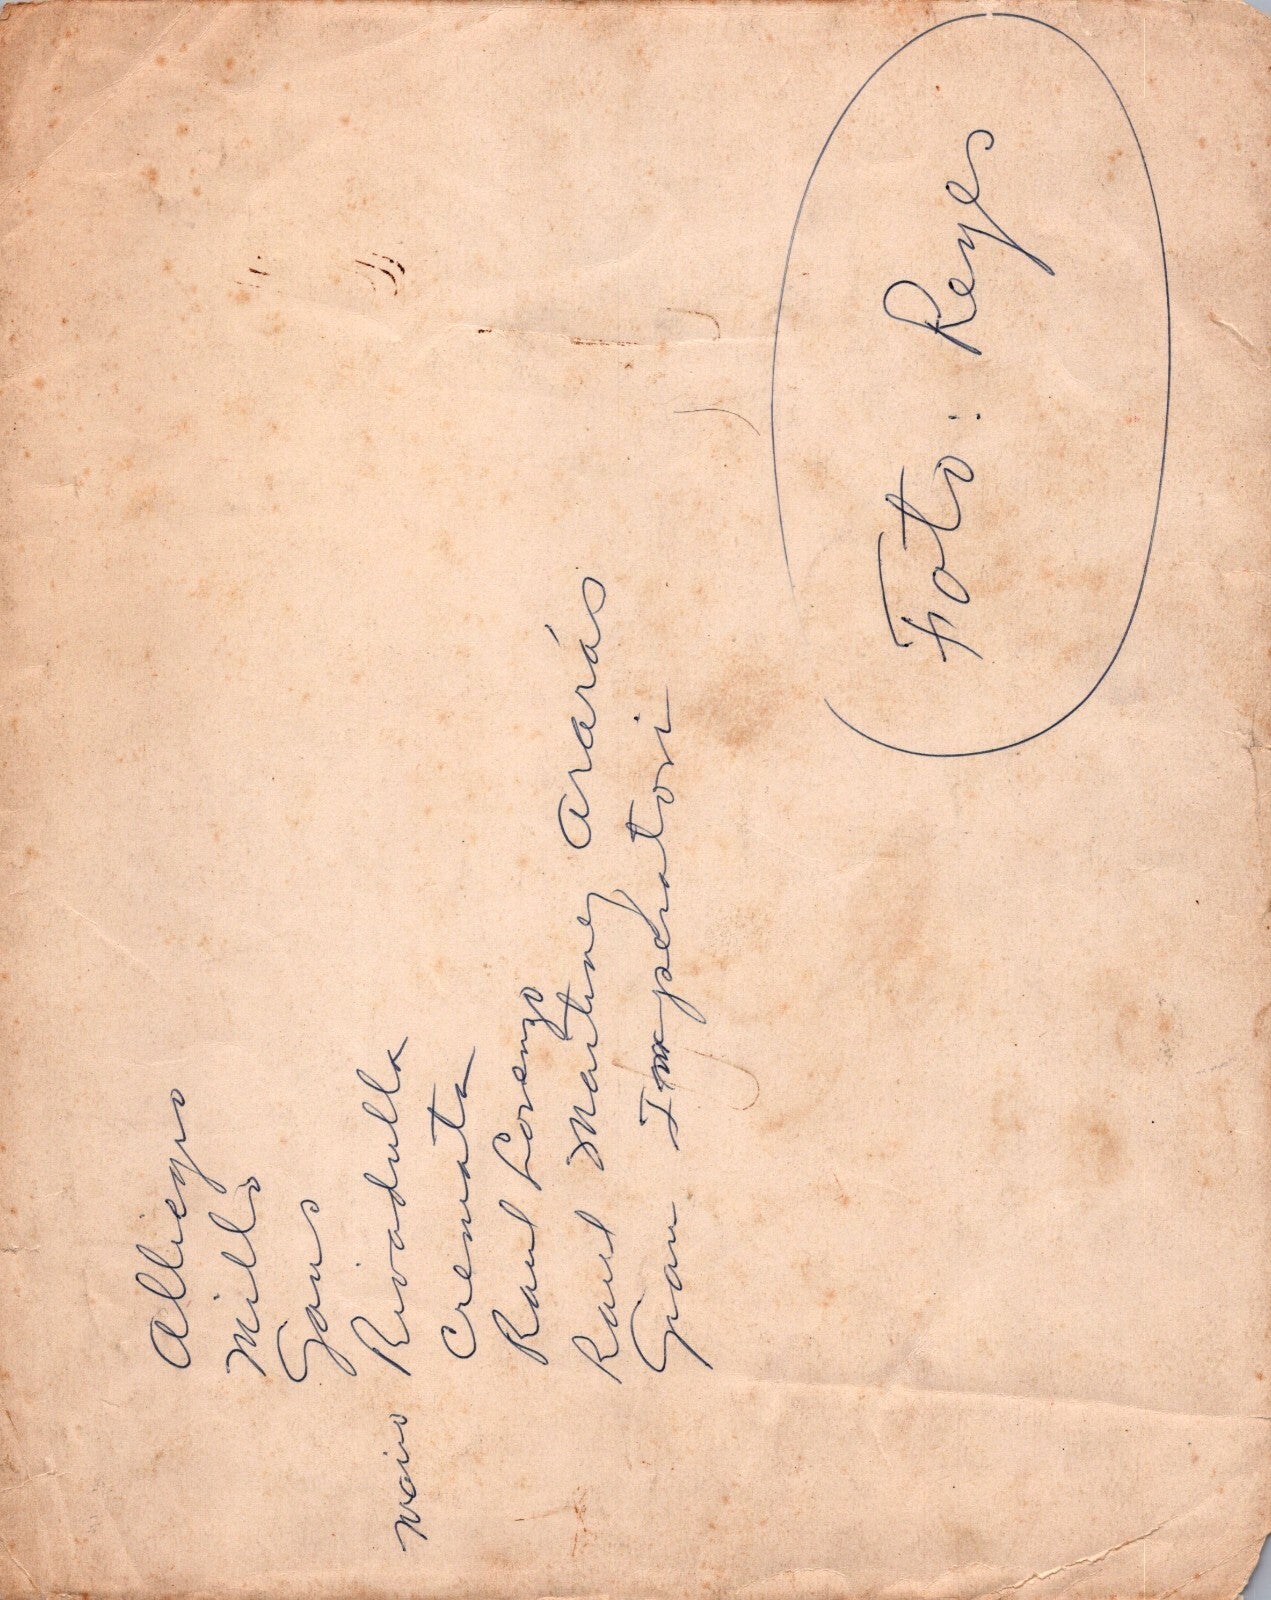 Alliegro
Millo
Gans
Mario Rivadulla
Cremata
Raul Lorenzo
Raul Martinez Ararás
Gian Imperatori
Foto: Reyes